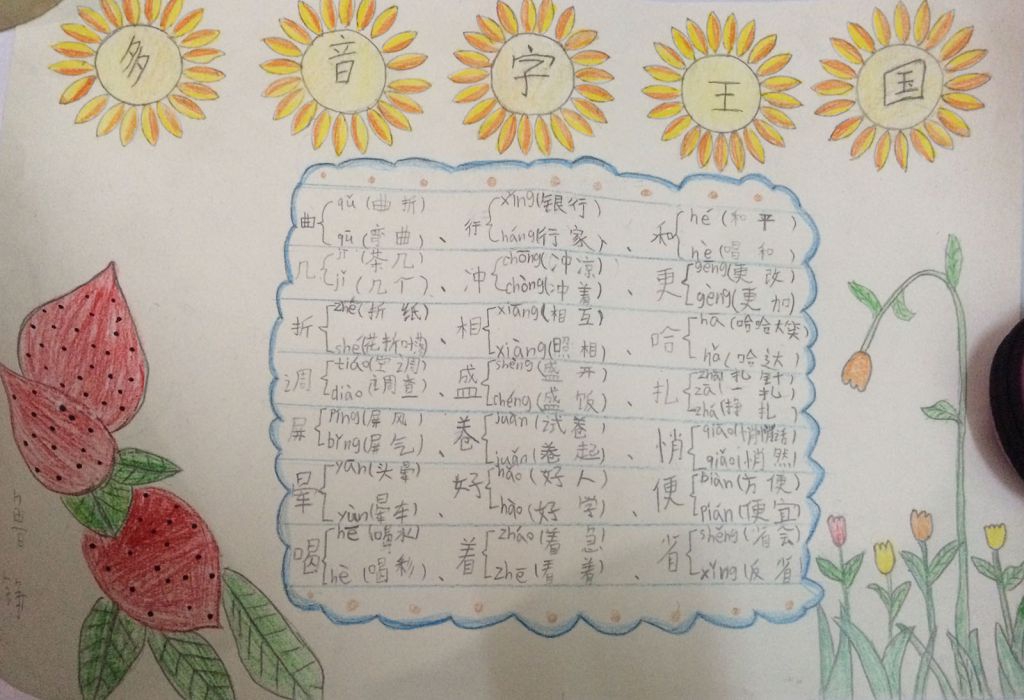 多音字王国
曲 qǔ(曲折) qū(弯曲)、行 xíng(银行) háng(行家)、、和 hé(和平) hè(唱和)
几 jī(茶几) jǐ(几个)、冲 chōng(冲凉) chòng(冲着)、更 gēng(更改) gèng(更加)
折 zhé(折纸) shé(花折叶掉)、相 xiāng(相互) xiàng(照相)、哈 hā(哈哈大笑) hǎ(哈达)
调 tiáo(空调) diào(调查)、盛 shèng(盛开) chéng(盛饭)、扎 zhā(扎针) zā(一扎) zhá(挣扎)
屏 píng(屏风) bǐng(屏气)、卷 juàn(试卷) juǎn(卷起)、悄 qiāo(悄悄话) qiǎo(悄然)
晕 yūn(头晕) yùn(晕车)、好 hǎo(好人) hào(好学)、便 biàn(方便) pián(便宜)
喝 hē(喝水) hè(喝彩)、着 zháo(着急) zhē(看着)、省 shěng(省会) xǐng(反省)